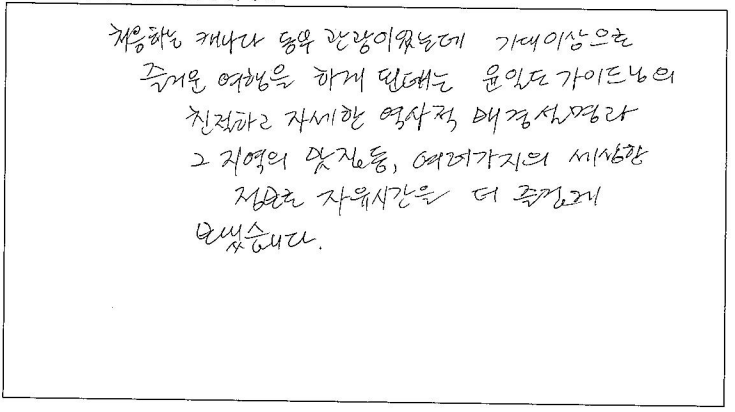 처음하는 캐나다 동부 관광이었는데 기대이상으로
즐거운 여행을 하게 된데는 윤일도 가이드님의
친절하고 자세한 역사적 배경설명과
그 지역의 맛집등, 여러가지의 세심한
정보로 자유시간을 더 즐겁게
보냈습니다.